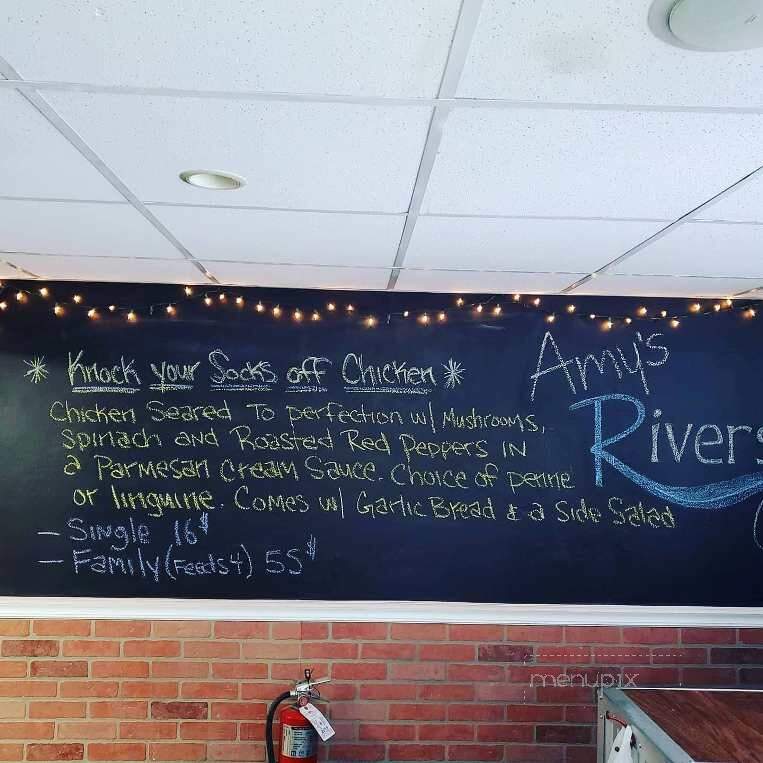 * Knock your Socks off Chicken *
Chicken Seared To perfection w/ Mushrooms,
Spinach and Roasted Red Peppers IN
a Parmesan Cream Sauce. Choice of penne
or linguine. Comes w/ Garlic Bread & a Side Salad
- Single 16$
- Family (Feeds 4) 55$
Amy's
Rivers
menupix